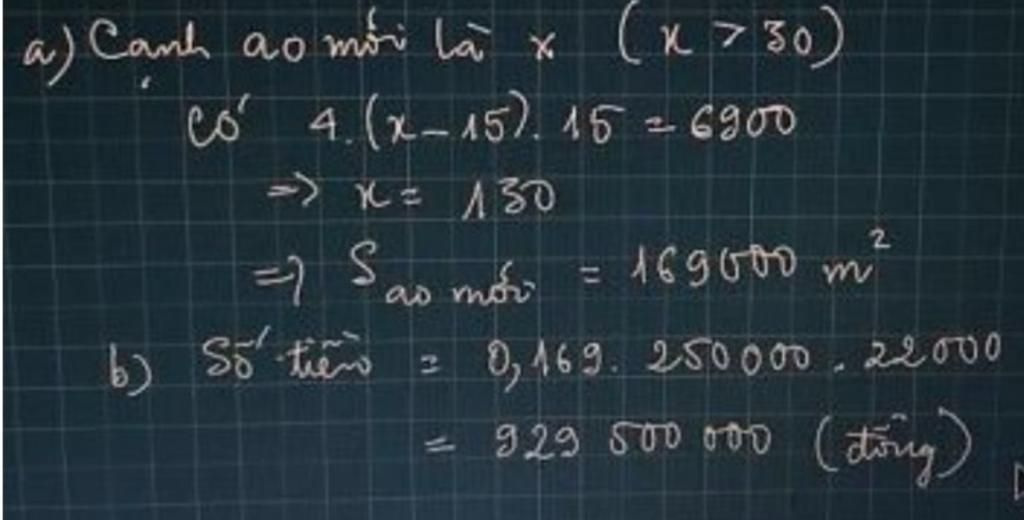 a) Cạnh ao mới là x (x > 30)
Có 4.(x - 15). 15 = 6900
=> x = 130
=> S ao mới = 169000 m²
b) Số tiền = 0,169. 250000. 22000
= 929 500 000 (đồng)